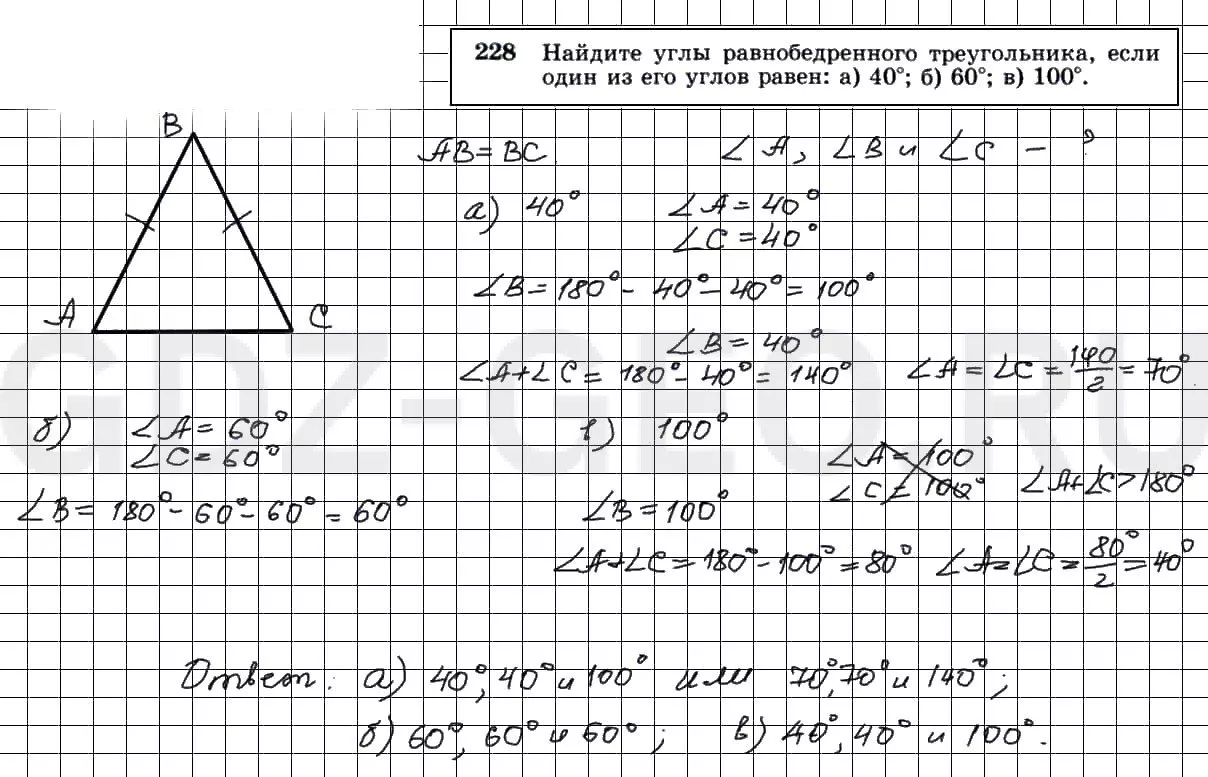 228 Найдите углы равнобедренного треугольника, если
один из его углов равен: а) 40°; б) 60°; в) 100°.
B
AB = BC ∠A, ∠B и ∠C – ?
а) 40° ∠A = 40°
∠C = 40°
∠B = 180° - 40° - 40° = 100°
A C
∠B = 40°
∠A+∠C = 180° - 40° = 140° ∠A = ∠C = 140/2 = 70°
GDZ-GEO.RU
б) ∠A = 60° в) 100°
∠C = 60° ∠A = 100°
∠C = 100° ∠A+∠C > 180°
∠B = 180° - 60° - 60° = 60° ∠B = 100°
∠A+∠C = 180° - 100° = 80° ∠A = ∠C = 80°/2 = 40°
Ответ: а) 40°, 40° и 100° или 70°, 70° и 140°;
б) 60°, 60° и 60°; в) 40°, 40° и 100°.